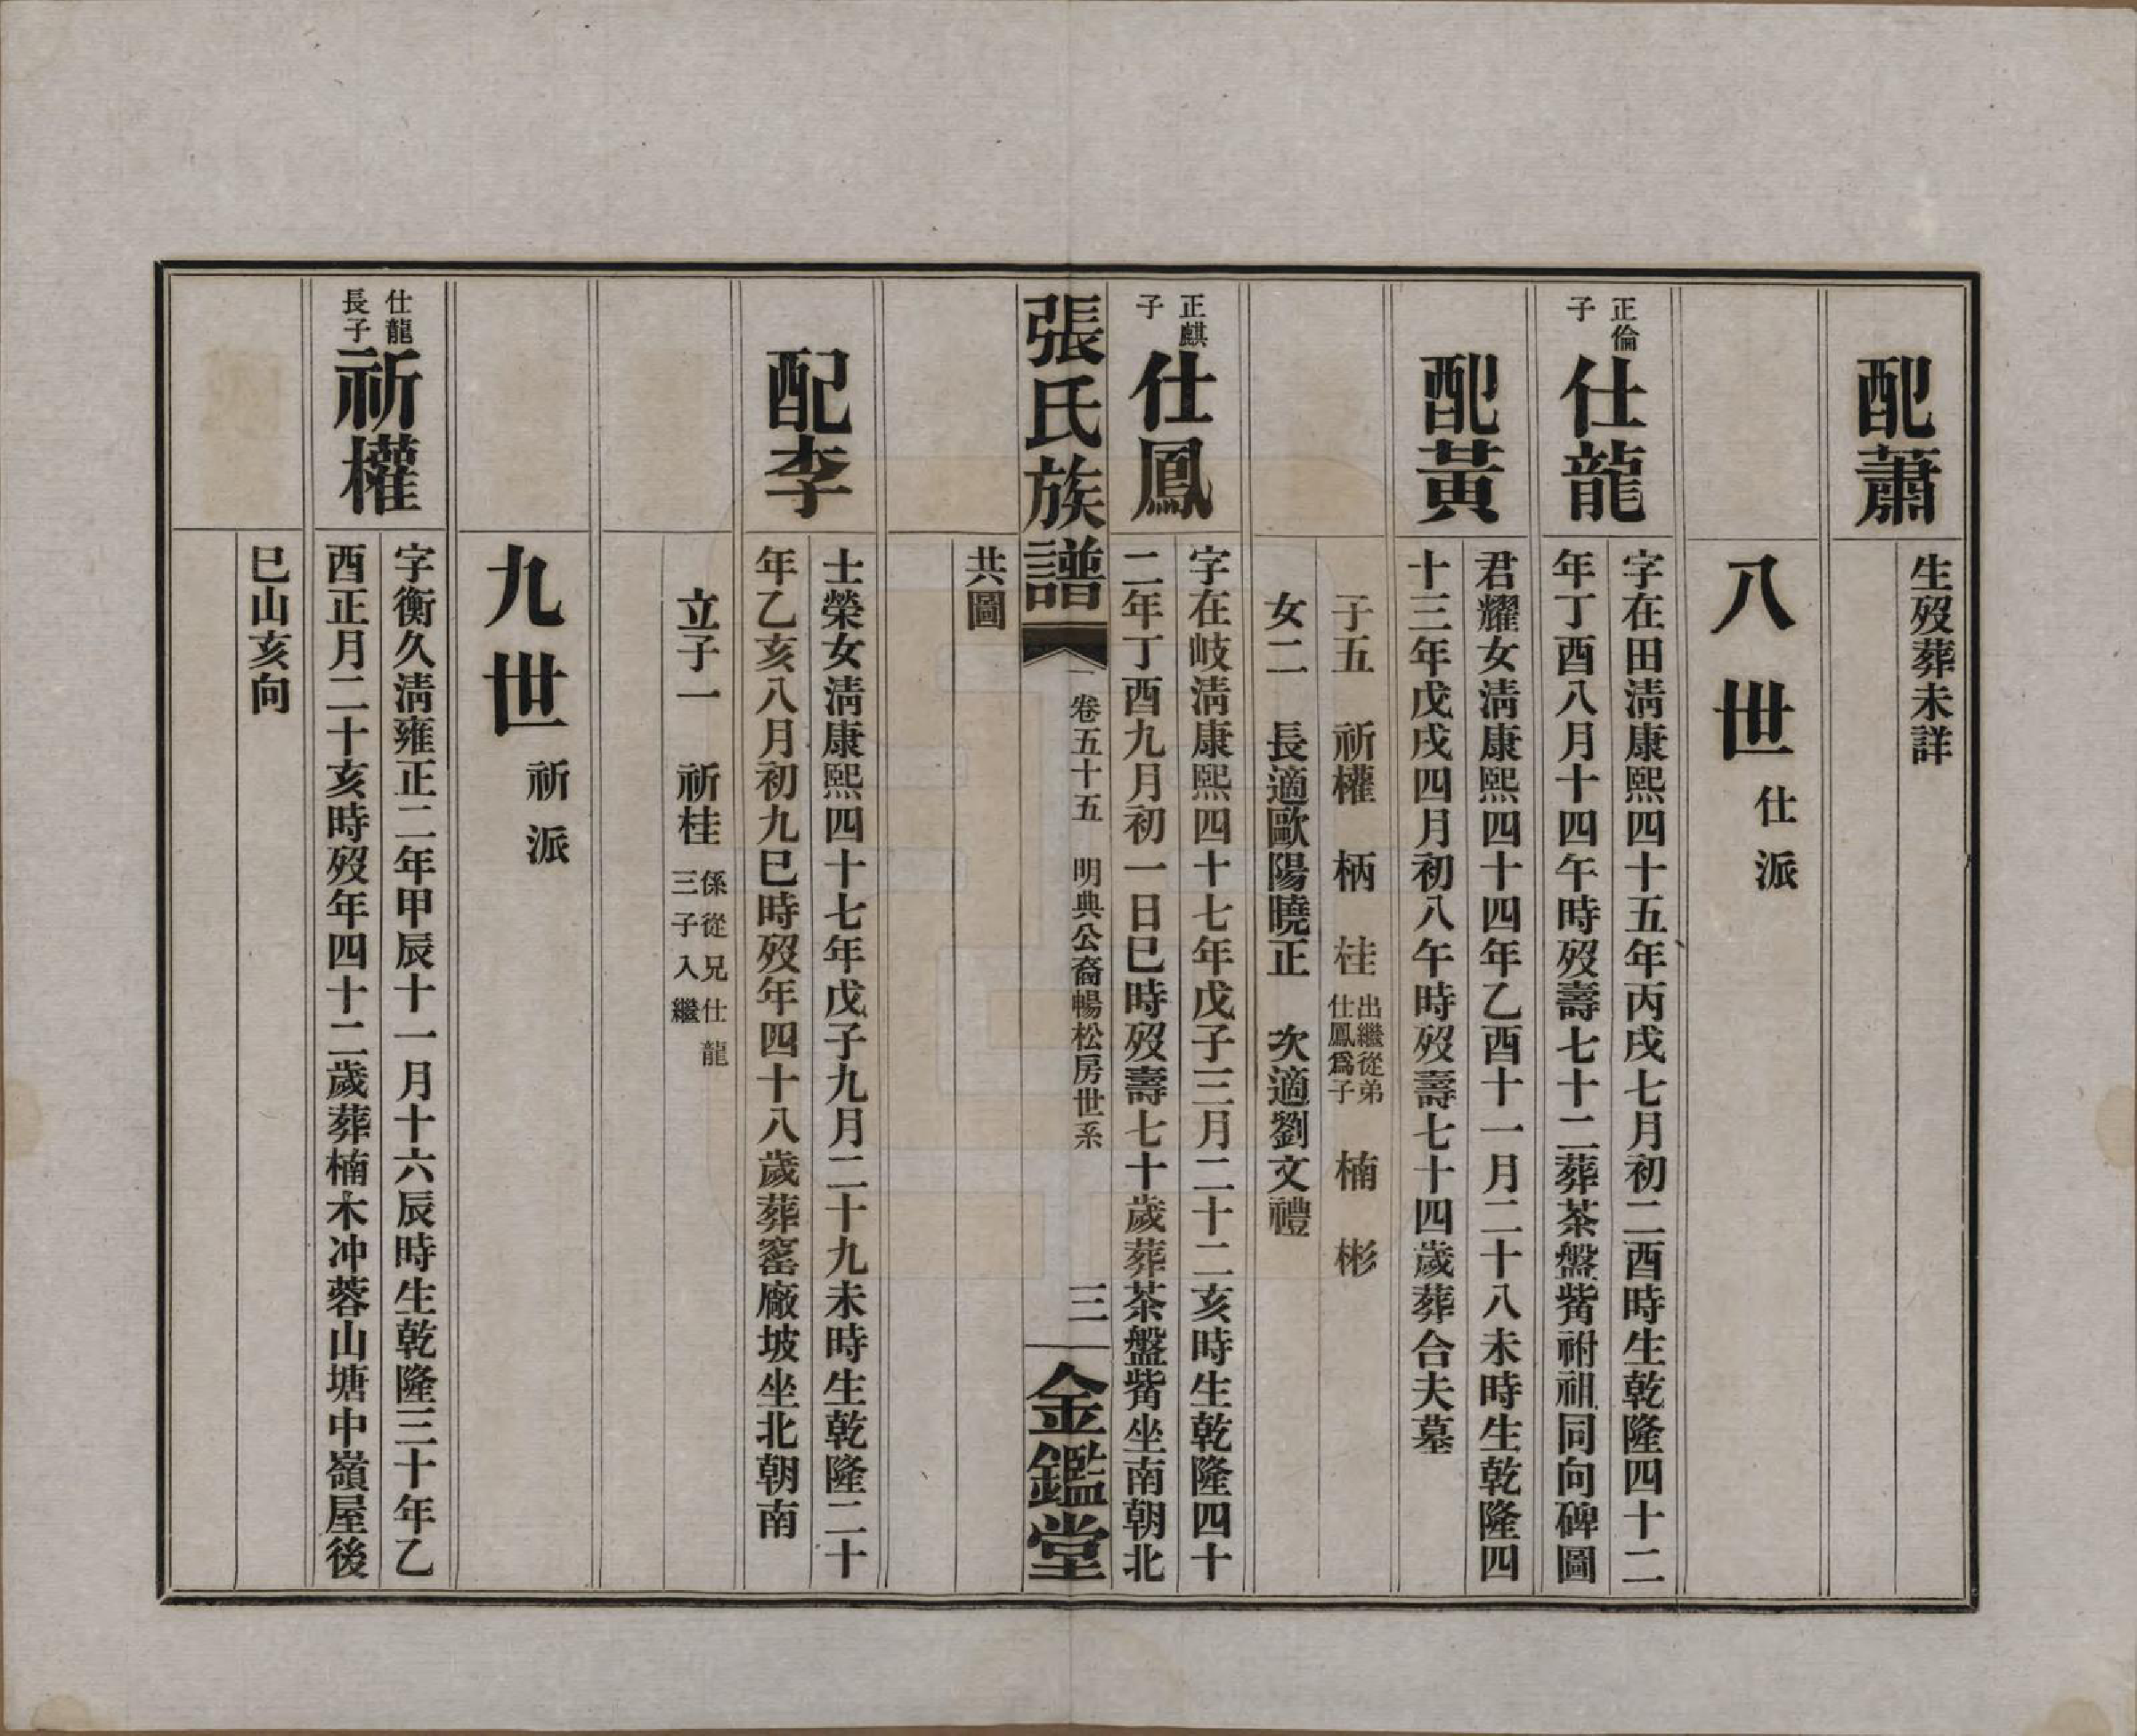 配蕭
生歿葬未詳
八世 仕派
正倫子
仕龍
字在田淸康熙四十五年丙戌七月初二酉時生乾隆四十二
年丁酉八月十四午時歿壽七十二葬茶盤觜祔祖同向碑圖
配黃
君耀女淸康熙四十四年乙酉十一月二十八未時生乾隆四
十三年戊戌四月初八午時歿壽七十四歲葬合夫墓
子五 祈權 柄 桂 出繼從弟仕鳳爲子 楠 彬
女二 長適歐陽曉正 次適劉文禮
正麒子
仕鳳
字在岐淸康熙四十七年戊子三月二十二亥時生乾隆四十
二年丁酉九月初一日巳時歿壽七十歲葬茶盤觜坐南朝北
張氏族譜 卷五十五 明典公裔暢松房世系 三 金鑑堂
共圖
配李
士榮女淸康熙四十七年戊子九月二十九未時生乾隆二十
年乙亥八月初九巳時歿年四十八歲葬窰廠坡坐北朝南
立子一 祈桂 係從兄仕龍三子入繼
九世 祈派
仕龍長子
祈權
字衡久淸雍正二年甲辰十一月十六辰時生乾隆三十年乙
酉正月二十亥時歿年四十二歲葬楠木冲蓉山塘中嶺屋後
巳山亥向